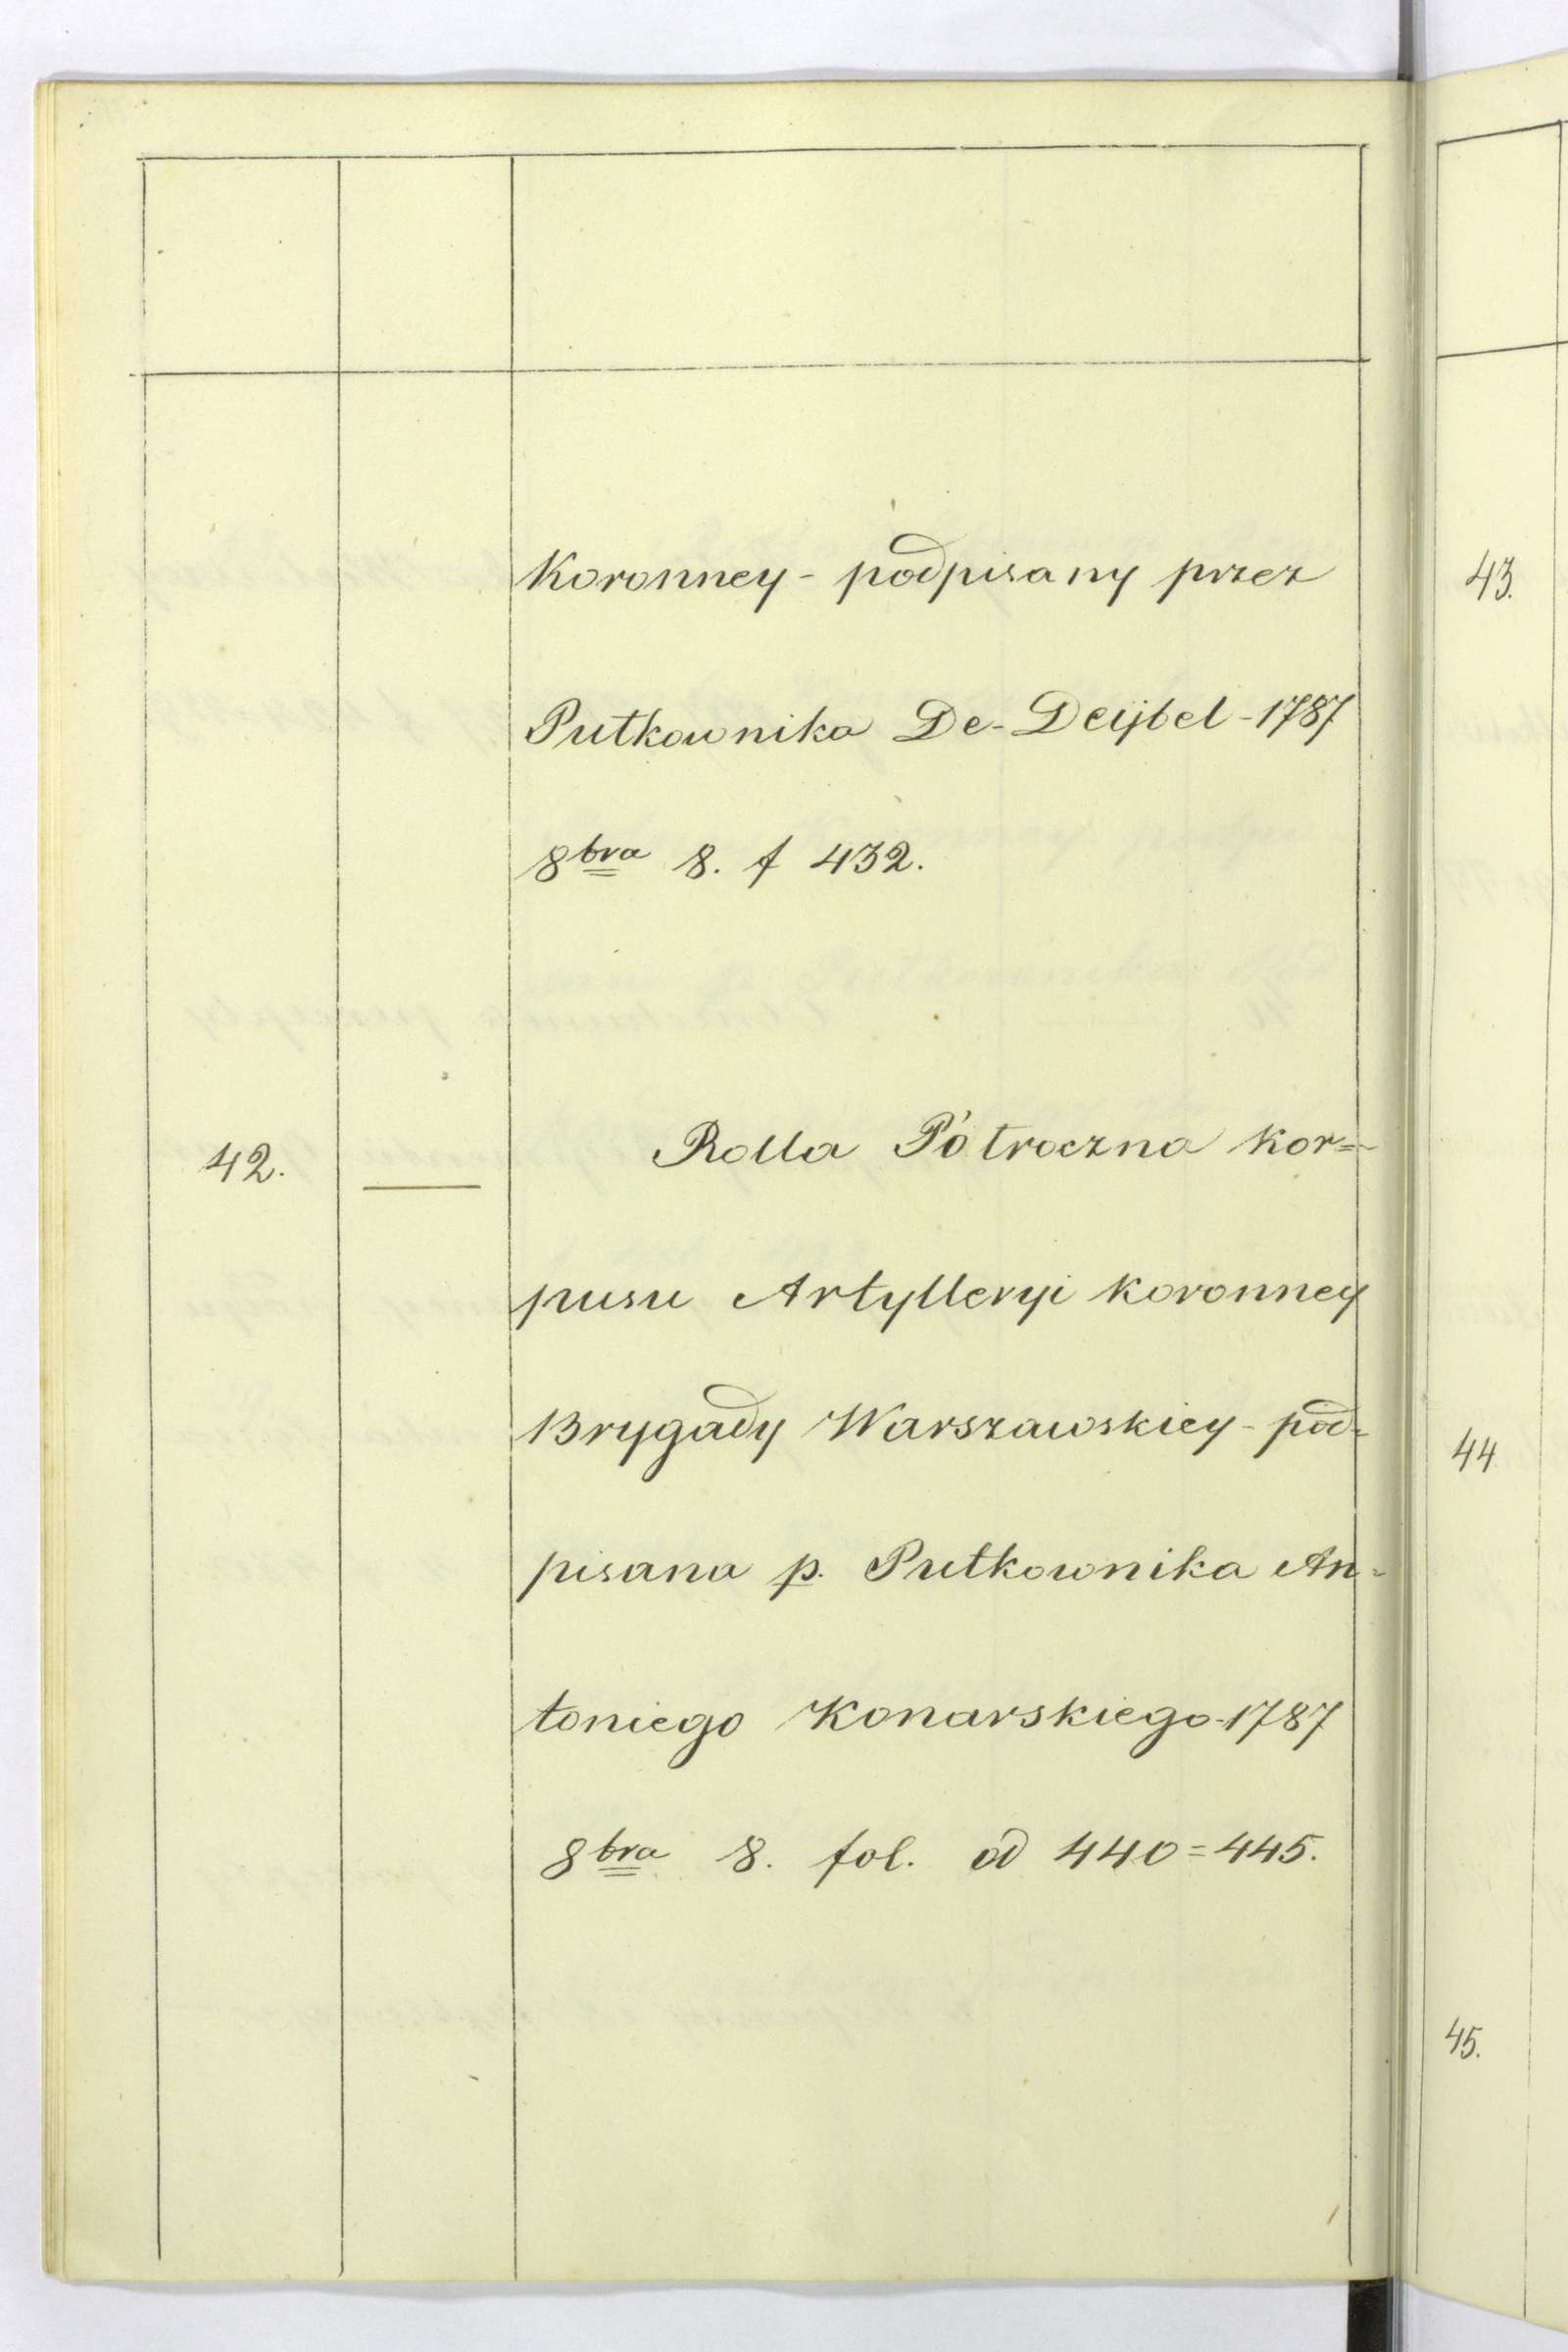 Koronney - podpisany przez
Pułkownika De-Deÿbel - 1787
8bra 8. f 432.
42. — Rolla Półroczna kor=
pusu Artylleryi Koronney
Brygady Warszawskiey - pod=
pisana p. Pułkownika An=
toniego Konarskiego - 1787
8bra 8. fol. od 440 = 445.
43.
44
45.